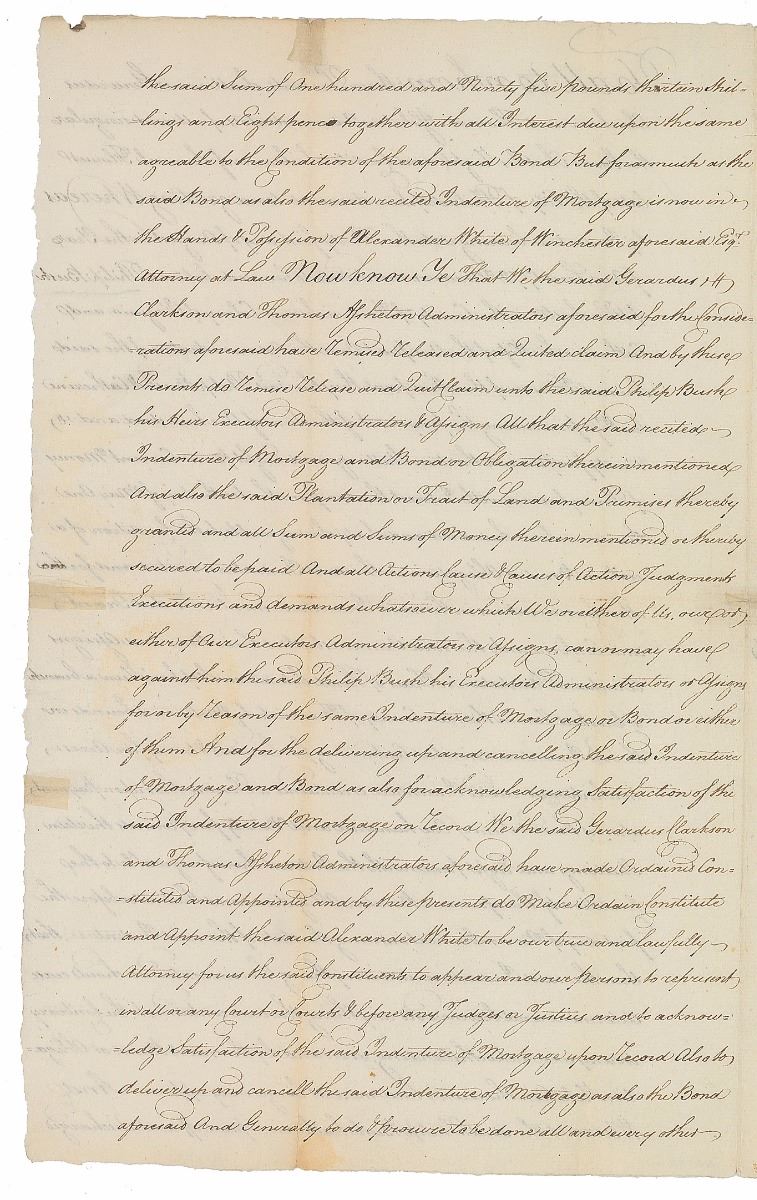 the said Sum of One hundred and Ninety five pounds thirtein Shil-
-lings and Eight pence together with all Interest due upon the same
agreable to the Condition of the aforesaid Bond But forasmuch as the
said Bond as also the said recited Indenture of Mortgage is now in
the Hands & Possession of Alexander White of Winchester aforesaid Esqr.
Attorney at Law Now know Ye That We the said Gerardus
Clarkson and Thomas Assheton Administrators aforesaid for the Conside-
-rations aforesaid have Remised Released and Quited claim And by these
Presents do Remise Release and Quit Claim unto the said Philip Bush
his Heirs Executors Administrators & Assigns All that the said recited
Indenture of Mortgage and Bond or Obligation therein mentioned
And also the said Plantation or Tract of Land and Premises thereby
granted and all Sum and Sums of Money therein mentioned or thereby
secured to be paid And all Actions Cause & Causes of Action Judgments
Executions and demands whatsoever which We or either of Us, our or
either of Our Executors Administrators or Assigns, can or may have
against him the said Philip Bush his Executors Administrators or Assigns
for or by Reason of the same Indenture of Mortgage or Bond or either
of them And for the delivering up and cancelling the said Indenture
of Mortgage and Bond as also for acknowledging Satisfaction of the
said Indenture of Mortgage on Record We the said Gerardus Clarkson
and Thomas Assheton Administrators aforesaid have made Ordained Con=
=stituted and Appointed and by these presents do Make Ordain Constitute
and Appoint the said Alexander White to be our true and lawfully
Attorney for us the said Constituents to appear and our Persons to represent
in all or any Court or Courts & before any Judges or Justices and to acknow=
-ledge Satisfaction of the said Indenture of Mortgage upon Record Also to
deliver up and cancell the said Indenture of Mortgage as also the Bond
aforesaid And Generally to do & procure to be done all and every other